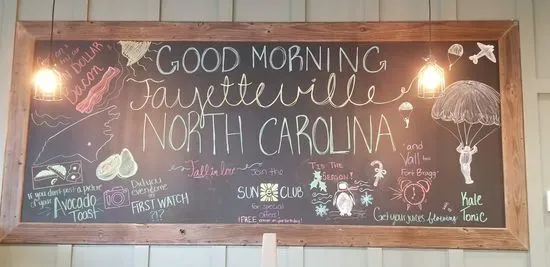 GOOD MORNING
Fayetteville
NORTH CAROLINA
DOLLAR
Bacon
if you don't post a picture
of your
Avocado
Toast
Did you
even come
to
FIRST WATCH
?!?
Fall in love
Join the
SUN
CLUB
for special
offers!
FREE
TIS THE
SEASON!
and
Y'all
Fort Bragg
Get your juices flowing
Kale
Tonic